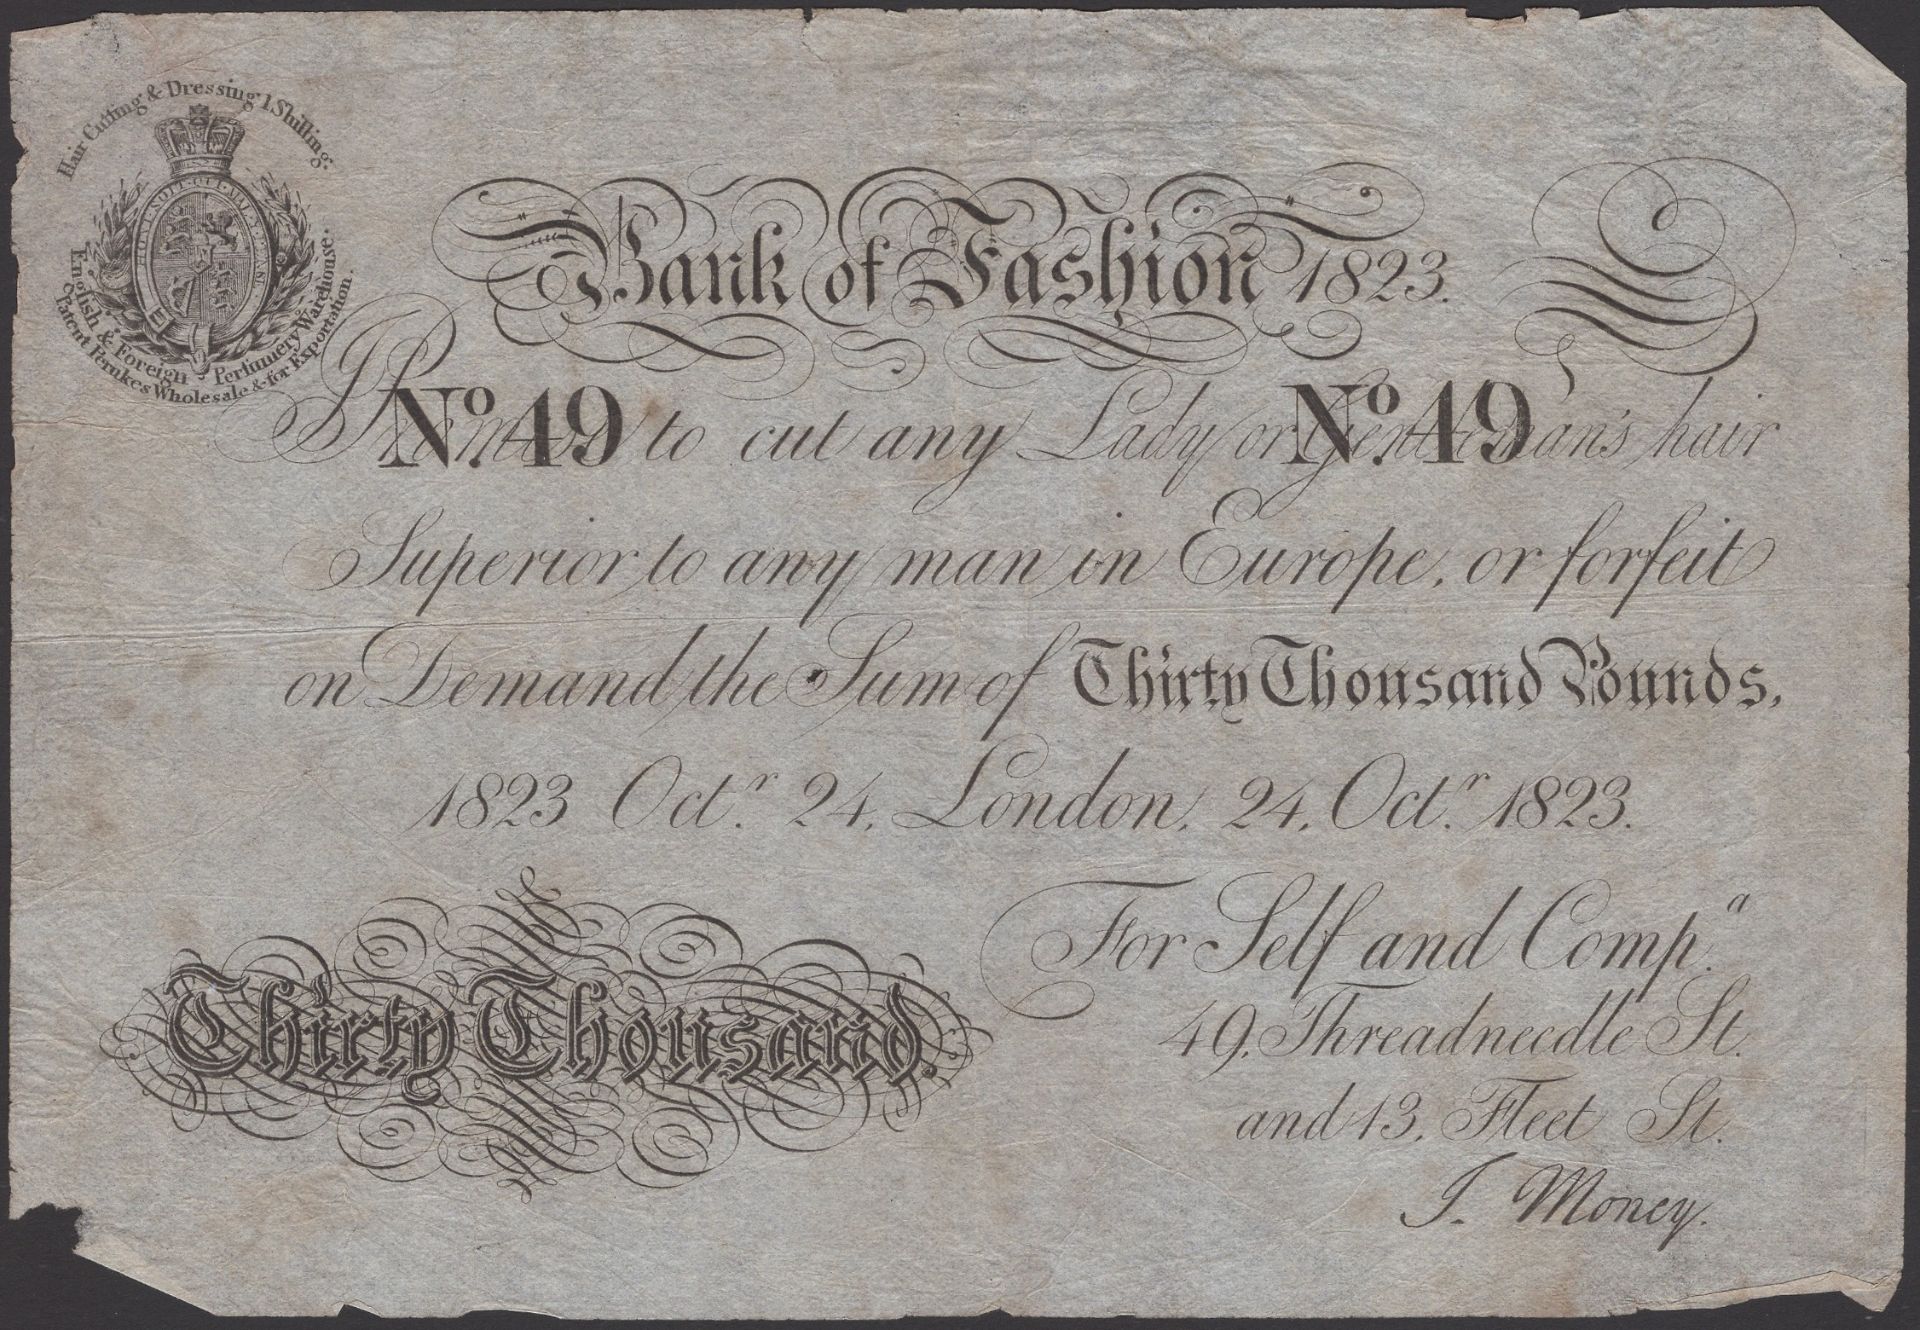 Hair Cutting & Dressing 1 Shilling.
HONI SOIT QUI MAL Y PENSE
English & Foreign Perfumery Warehouse.
Patent Perukes Wholesale & for Exportation.
Bank of Fashion 1823.
No. 49 No. 49
I Promise to cut any Lady or Gentleman's hair
Superior to any man in Europe, or forfeit
on Demand the Sum of Thirty Thousand Pounds,
1823 Octr. 24, London, 24, Octr. 1823.
For Self and Compa.
Thirty Thousand.
49, Threadneedle St.
and 13, Fleet St.
J. Money.